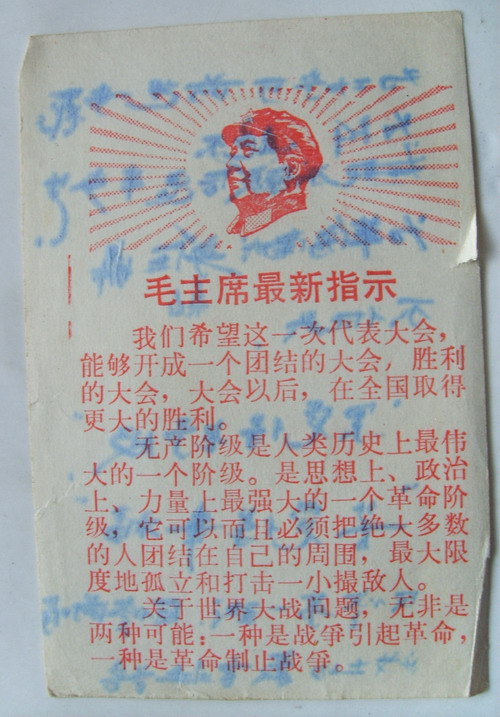 毛主席最新指示
我们希望这一次代表大会，
能够开成一个团结的大会，胜利
的大会，大会以后，在全国取得
更大的胜利。
无产阶级是人类历史上最伟
大的一个阶级。是思想上、政治
上、力量上最强大的一个革命阶
级，它可以而且必须把绝大多数
的人团结在自己的周围，最大限
度地孤立和打击一小撮敌人。
关于世界大战问题，无非是
两种可能：一种是战争引起革命，
一种是革命制止战争。